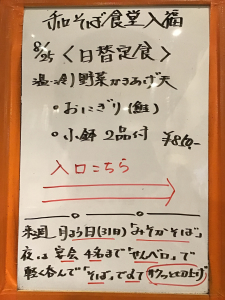 和そば食堂入福
8/25 <日替定食>
温・冷 野菜かきあげ天
○おにぎり(鮭)
○小鉢 2品付 ¥860-
入口こちら
来週 月末日(31日)「みそかそば」
夜は宴会 4名まで「せんベロ」で
軽く呑んで「そば」で〆て